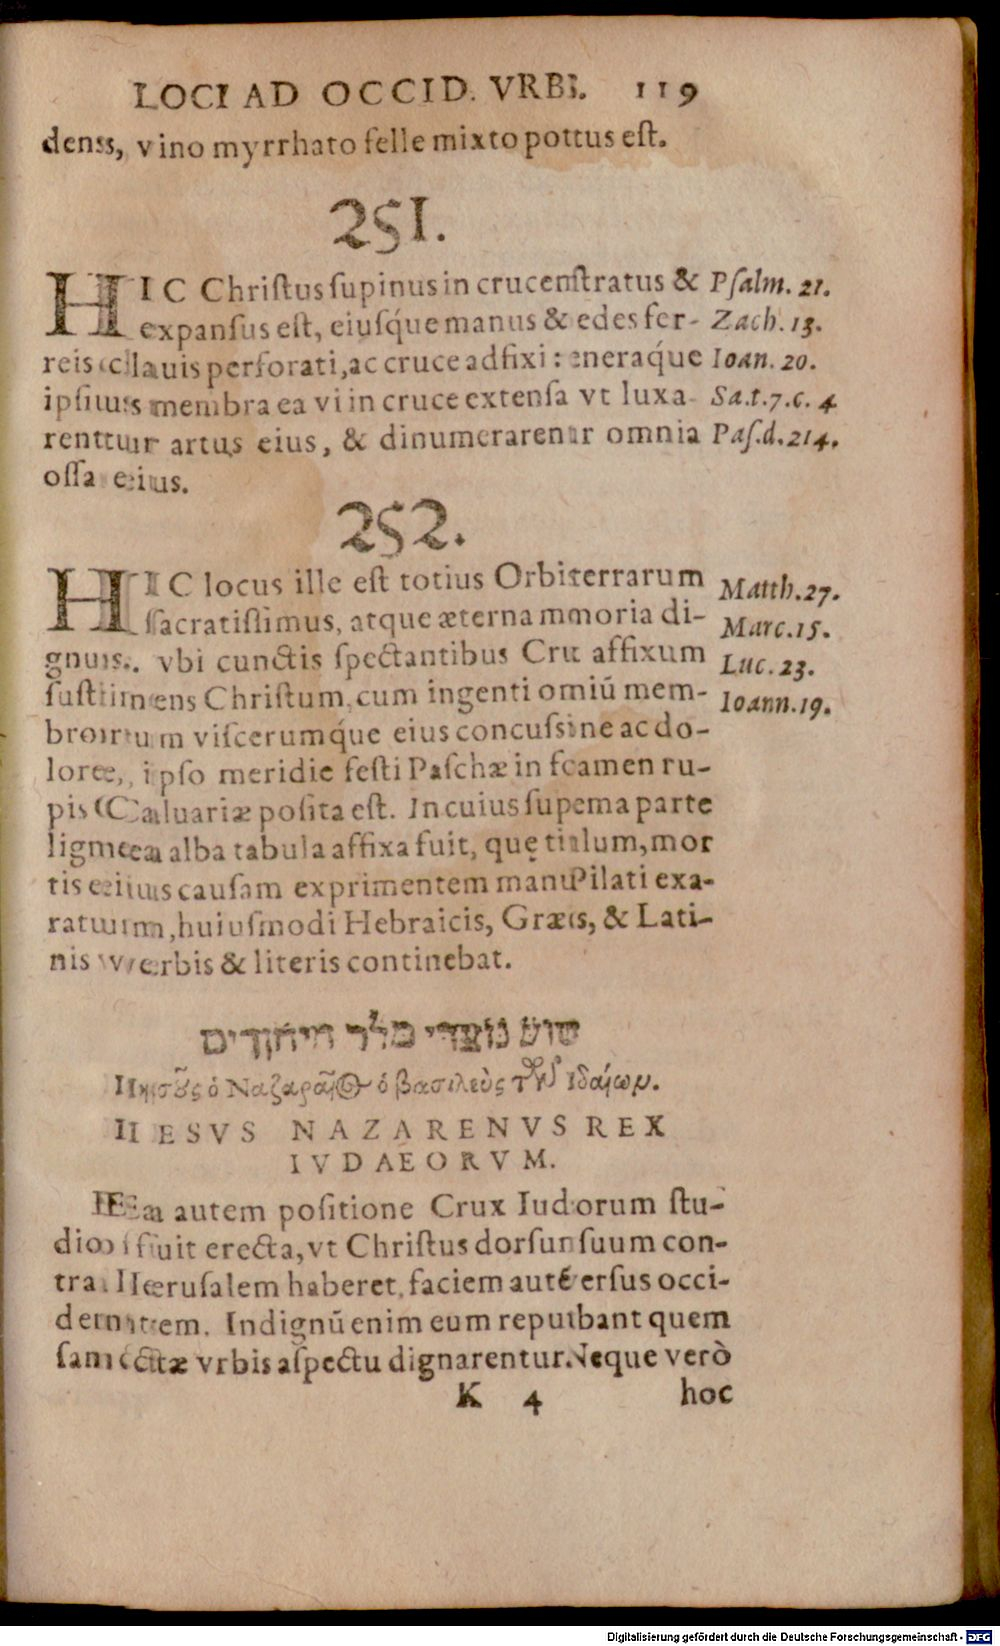 LOCI AD OCCID. VRBI. 119
dens, vino myrrhato felle mixto pottus est.
251.
HIC Christus supinus in crucem stratus &
expansus est, eiusq́ue manus & edes fer-
reis clauis perforati, ac cruce adfixi: eneraq́ue
ipsius membra ea vi in cruce extensa vt luxa
rentur artus eius, & dinumerarentur omnia
ossa eius.
Psalm. 21.
Zach. 13.
Ioan. 20.
Sa.t.7.c. 4
Pas.d.214.
252.
HIC locus ille est totius Orbis terrarum
sacratissimus, atque æterna mmoria di-
gnus. vbi cunctis spectantibus Crux affixum
sustinens Christum, cum ingenti omniū mem-
brorum viscerumq́ue eius concussione ac do-
lore, ipso meridie festi Paschæ in foramen ru-
pis Caluariæ posita est. In cuius suprema parte
lignea alba tabula affixa fuit, quę titulum, mor
tis eius causam exprimentem manu Pilati exa-
ratum, huiusmodi Hebraicis, Græcis, & Lati-
nis verbis & literis continebat.
Matth. 27.
Marc. 15.
Luc. 23.
Ioann. 19.
שוע נוצרי מלך היהודים
Ιησοῦς ὁ Ναζαραῖος ὁ βασιλεὺς τῶν Ιδαίων.
IESVS NAZARENVS REX
IVDAEORVM.
Ea autem positione Crux Iudæorum stu-
dio fuit erecta, vt Christus dorsum suum con-
tra Hierusalem haberet, faciem autē versus occi-
dentem. Indignū enim eum reputabant quem
sanctæ vrbis aspectu dignarentur. Neque verò
K 4 hoc
Digitalisierung gefördert durch die Deutsche Forschungsgemeinschaft - DFG